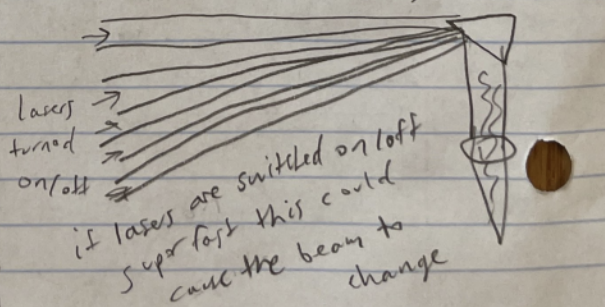 lasers
turned
on/off
if lasers are switched on/off
super fast this could
cause the beam to
change